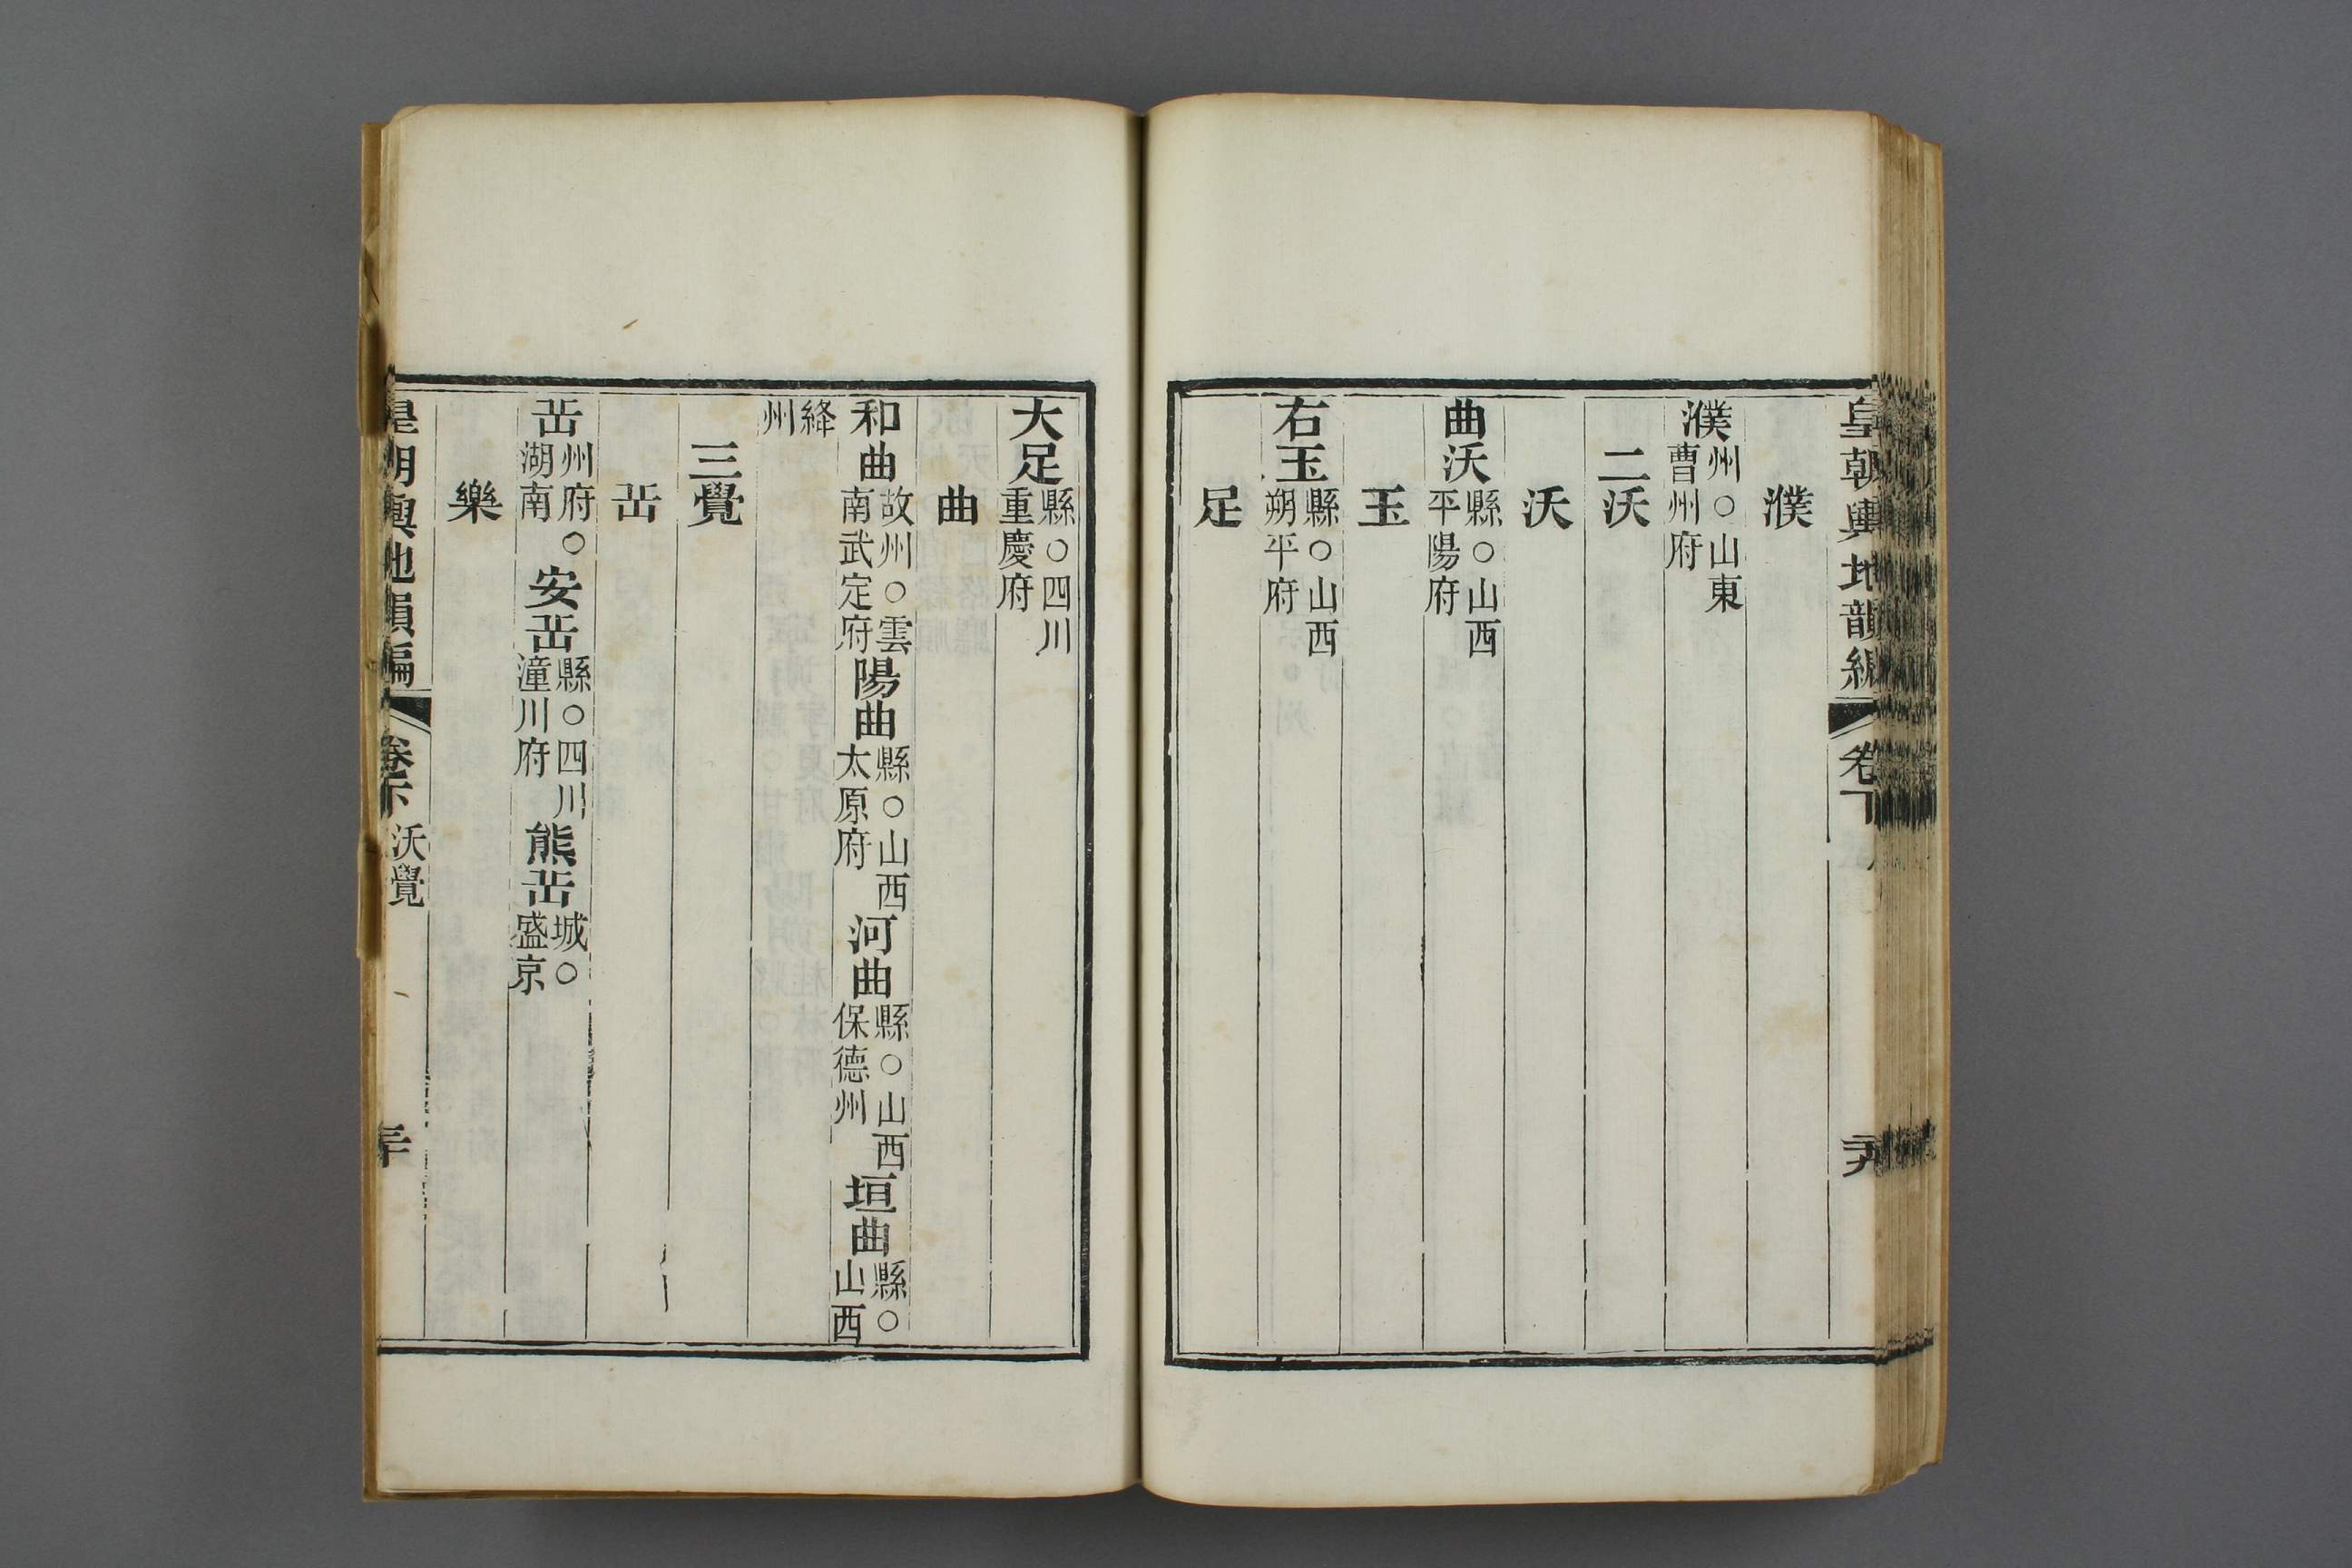 皇朝輿地韻編 卷下
濮
濮州○山東曹州府
二沃
沃
曲沃縣○山西平陽府
玉
右玉縣○山西朔平府
足
大足縣○四川重慶府
曲
和曲故州○雲南武定府陽曲縣○山西太原府河曲縣○山西保德州垣曲縣○山西
絳州
三覺
岳
岳州府○湖南安岳縣○四川潼川府熊岳城○盛京
樂
皇朝輿地韻編 卷下 沃覺 三十